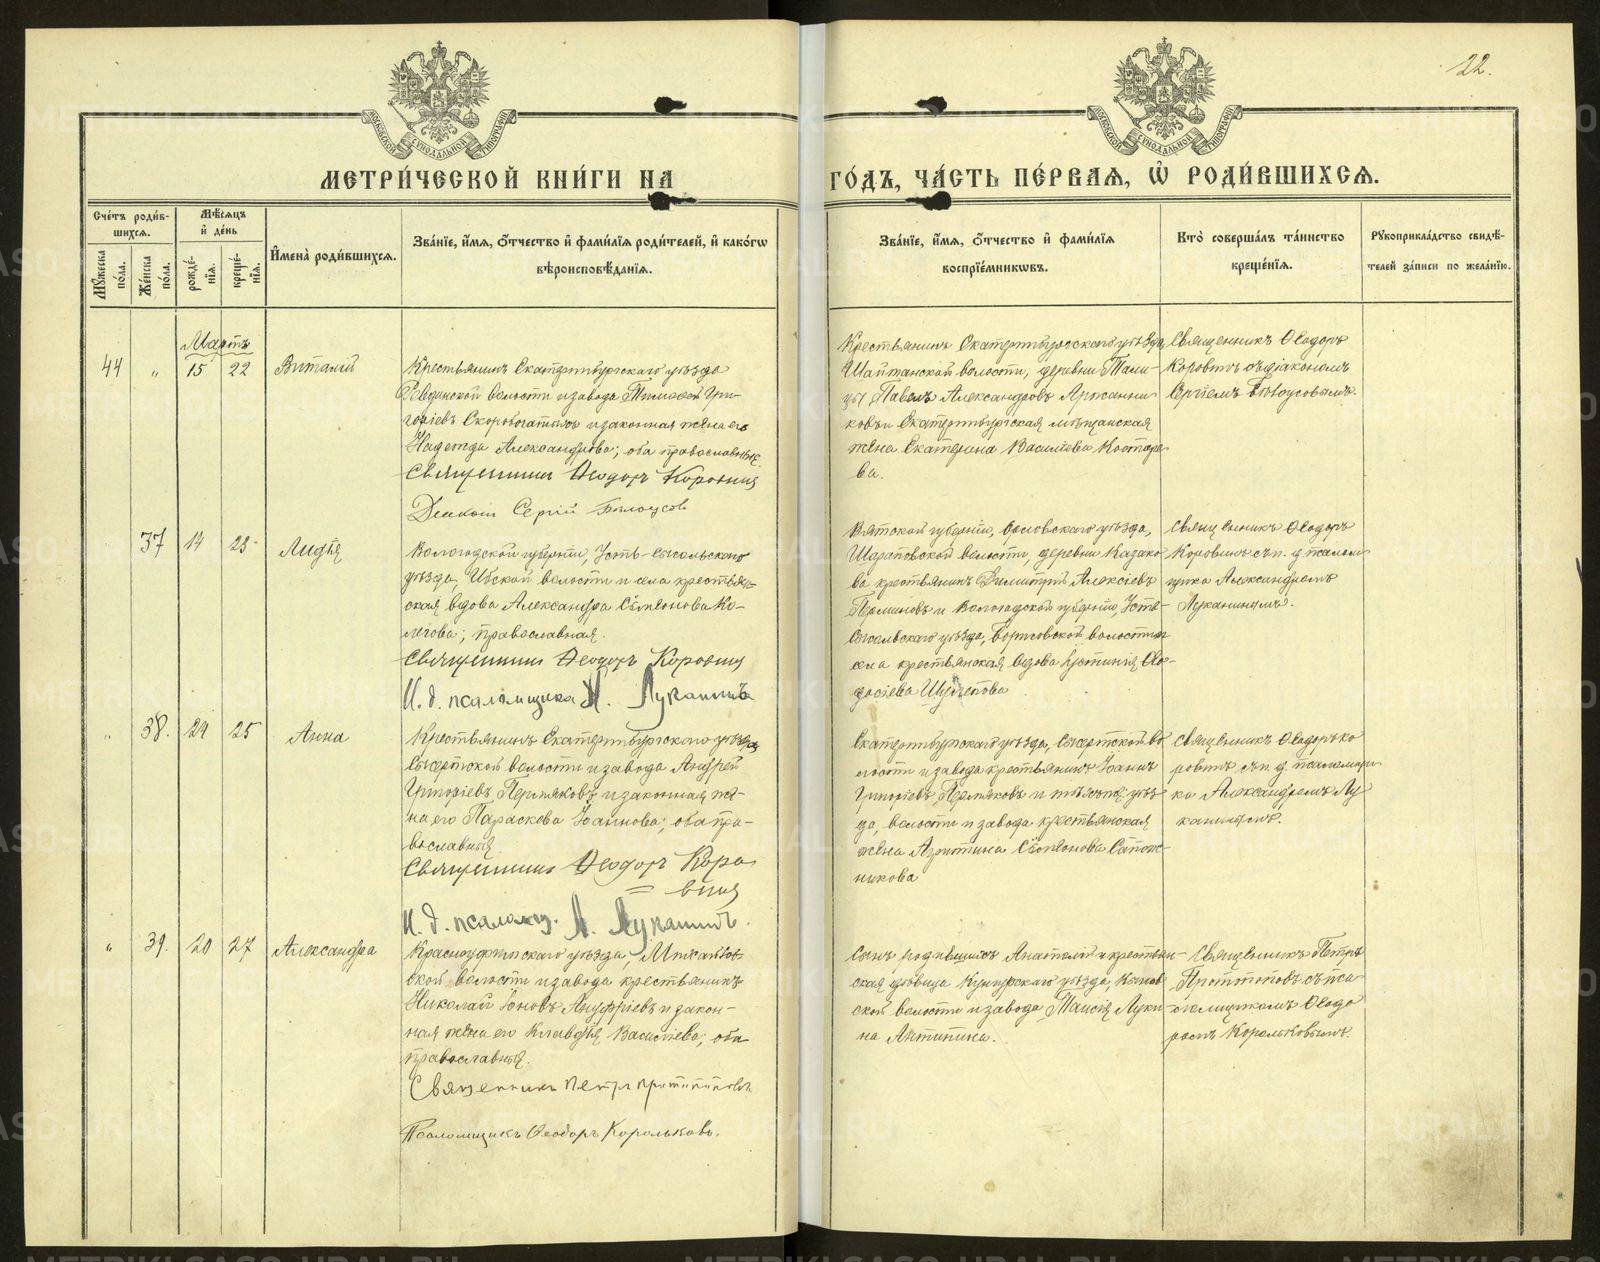 22.
МОСКОВСКОЙ СѴНОДАЛЬНОЙ ТИПОГРАФІИ
МОСКОВСКОЙ СѴНОДАЛЬНОЙ ТИПОГРАФІИ
МЕТРИ́ЧЕСКОЙ КНИ́ГИ НА
ГО́ДЪ, ЧА́СТЬ ПЕ́РВАѦ, Ѡ҆ РОДИ́ВШИХСѦ.
Сче́тъ роди́в-
шихсѧ.
Му́жеска по́ла.
Же́нска по́ла.
Мѣ́сѧцъ
и҆ де́нь
рожде́-
нїѧ.
креще́-
нїѧ.
И҆мена̀ роди́вшихсѧ.
Зва́нїе, и҆́мѧ, ѻ҆́тчество и҆ фами́лїѧ роди́телей, и҆ како́гѡ
вѣроисповѣ́данїѧ.
Зва́нїе, и҆́мѧ, ѻ҆́тчество и҆ фами́лїѧ
воспрїе́мникѡвъ.
Кто̀ соверша́лъ та́инство
креще́нїѧ.
Рꙋкоприкла́дство свидѣ́-
телей за́писи по жела́нїю.
Мартъ
44 " 15 22 Виталій
Крестьянинъ Екатеринбургскаго уѣзда
Ревдинской волости и завода Тимофей Гри-
горіевъ Скоробогатовъ и законная жена его
Надежда Александрова; оба православные.
Священникъ Ѳеодоръ Коровинъ
Діаконъ Сергій Бѣлоусовъ
Крестьянинъ Екатеринбургскаго уѣзда
Шайтанской волости, деревни Тали-
цы Павелъ Александровъ Аржанни-
ковъ и Екатеринбургская мѣщанская
жена Екатерина Васильева Костаре-
ва.
Священникъ Ѳеодоръ
Коровинъ съ діакономъ
Сергіемъ Бѣлоусовымъ.
37 14 23 Лидія
Вологодской губерніи, Усть-Сысольскаго
уѣзда, Ибской волости и села крестьян-
ская вдова Александра Сѵмеонова Ко-
легова; православная.
Священникъ Ѳеодоръ Коровинъ
И. д. псаломщика А. Луканинъ
Вятской губерніи, Орловскаго уѣзда,
Шараповской волости, деревни Казако-
ва крестьянинъ Димитрій Алексіевъ
Перминовъ и Вологодской губерніи, Усть-
Сысольскаго уѣзда, волости и
села крестьянская вдова Ѳео-
досіева
Священникъ Ѳеодоръ
Коровинъ съ и. д. псалом-
щика Александромъ
Луканинымъ.
" 38. 24 25 Анна
Крестьянинъ Екатеринбургскаго уѣзда
Сысертской волости и завода Андрей
Григоріевъ Пермяковъ и законная же-
на его Параскева Іоаннова; оба пра-
вославные.
Священникъ Ѳеодоръ Коро-
винъ
И. д. псаломщ. А. Луканинъ.
Екатеринбургскаго уѣзда, Сысертской во-
лости и завода крестьянинъ Іоаннъ
Григоріевъ Пермяковъ и тѣхъ-же уѣз-
да, волости и завода крестьянская
жена Агрипина Сѵмеонова Сапож-
никова
Священникъ Ѳеодоръ Ко-
ровинъ съ и. д. псаломщи-
ка Александромъ Лу-
канинымъ.
" 39. 20 27 Александра
Красноуфимскаго уѣзда, Михайлов-
ской волости и завода крестьянинъ
Николай Іоновъ Ануфріевъ и закон-
ная жена его Клавдія Васильева; оба
православные.
Священникъ Петръ Протопоповъ
Псаломщикъ Ѳеодоръ Корольковъ.
Сынъ родившихъ Анатолій и крестьян-
ская дѣвица Кунгурскаго уѣзда,
ской волости и завода Таисія Луки-
на Антипина.
Священникъ Петръ
Протопоповъ съ пса-
ломщикомъ Ѳеодо-
ромъ Корольковымъ.
METRIKI.GASO-URAL.RU